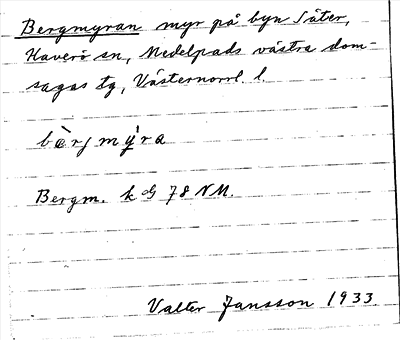 Bergmyran myr på byn Säter,
Haverö sn, Medelpads västra dom-
sagas tg, Västernorrl. l.
bær̀jmýra
Bergm. k G 78 NM.
Valter Jansson 1933